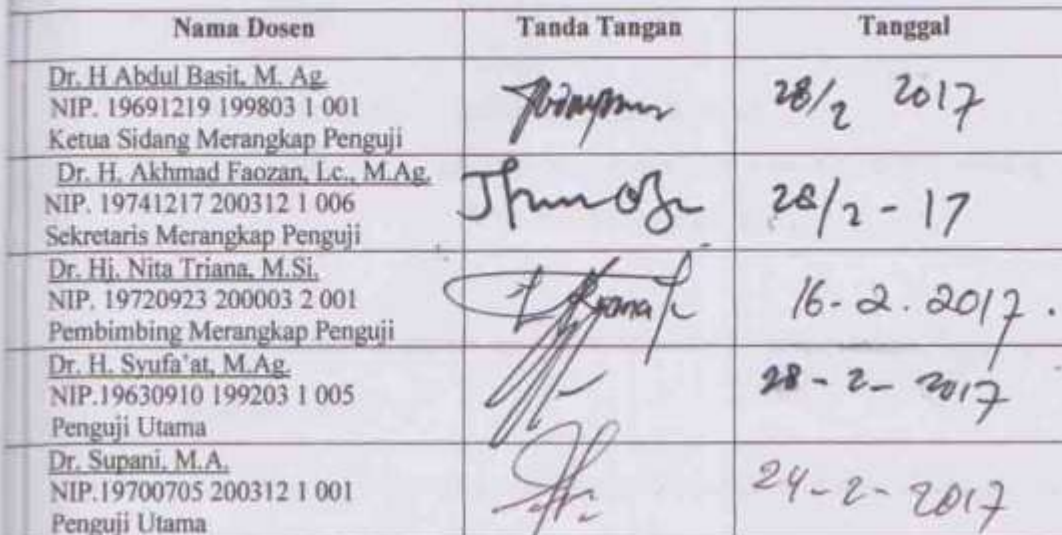 Nama Dosen Tanda Tangan Tanggal
Dr. H Abdul Basit, M. Ag.
NIP. 19691219 199803 1 001 28/2 2017
Ketua Sidang Merangkap Penguji
Dr. H. Akhmad Faozan, Lc., M.Ag.
NIP. 19741217 200312 1 006 28/2 - 17
Sekretaris Merangkap Penguji
Dr. Hj. Nita Triana, M.Si.
NIP. 19720923 200003 2 001 16-2.2017.
Pembimbing Merangkap Penguji
Dr. H. Syufa'at, M.Ag.
NIP.19630910 199203 1 005 28-2-2017
Penguji Utama
Dr. Supani, M.A.
NIP.19700705 200312 1 001 24-2-2017
Penguji Utama